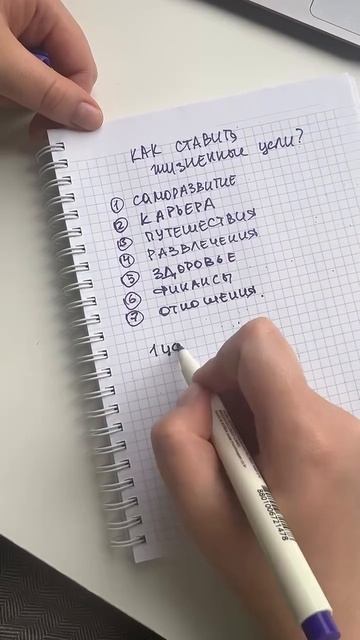 КАК СТАВИТЬ
ЖИЗНЕННЫЕ ЦЕЛИ?
1 САМОРАЗВИТИЕ
2 КАРЬЕРА
3 ПУТЕШЕСТВИЯ
4 РАЗВЛЕЧЕНИЯ
5 ЗДОРОВЬЕ
6 ФИНАНСЫ
7 ОТНОШЕНИЯ.
1 це
8801006721478